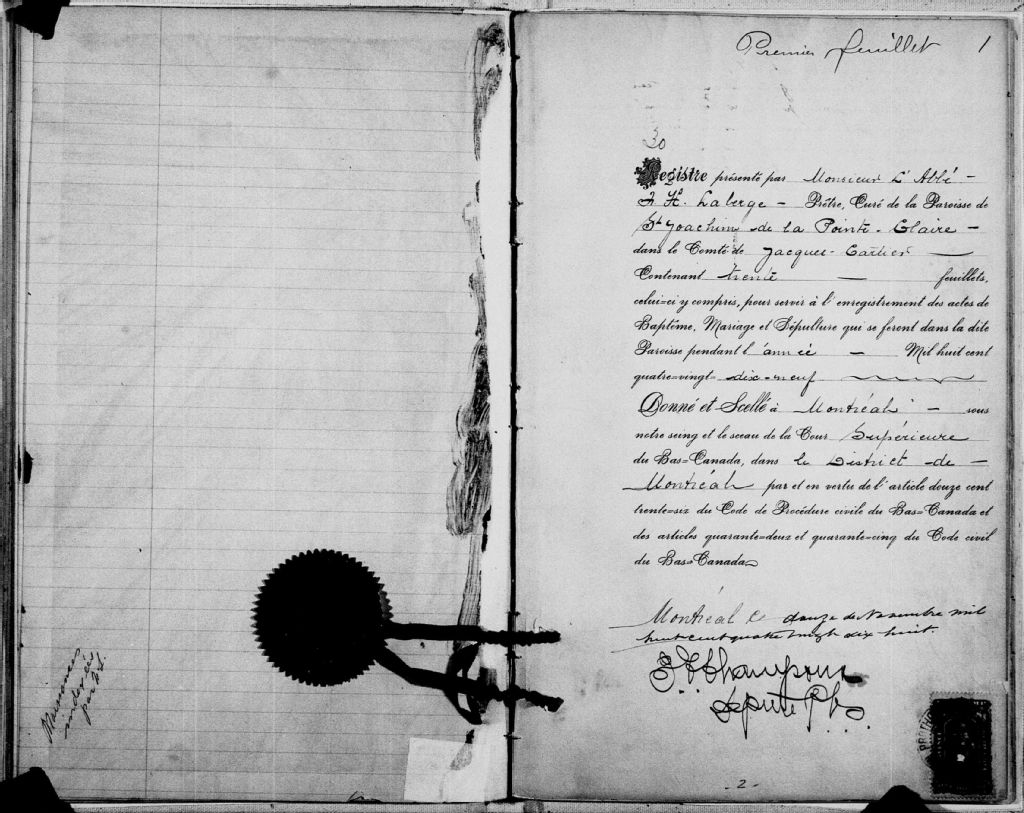 Premier feuillet 1
30
Registre présenté par Monsieur L'Abbé -
Laberge - Prêtre, Curé de la Paroisse de
St Joachim de la Pointe-Claire -
dans le Comté de Jacques-Cartier —
Contenant trente — feuillets,
celui=ci y compris, pour servir à l'enregistrement des actes de
Baptême, Mariage et Sépulture qui se feront dans la dite
Paroisse pendant l'année — Mil huit cent
quatre=vingt= dix-neuf
Donné et Scellé à Montréal - sous
notre seing et le sceau de la Cour Supérieure
du Bas=Canada, dans le District de -
Montréal par et en vertu de l'article douze cent
trente=six du Code de Procédure civile du Bas=Canada et
des articles quarante=deux et quarante=cinq du Code civil
du Bas=Canada
Montréal le douze de Novembre mil
huit cent quatre vingt dix huit.
Député P.
-2-
indexée
par